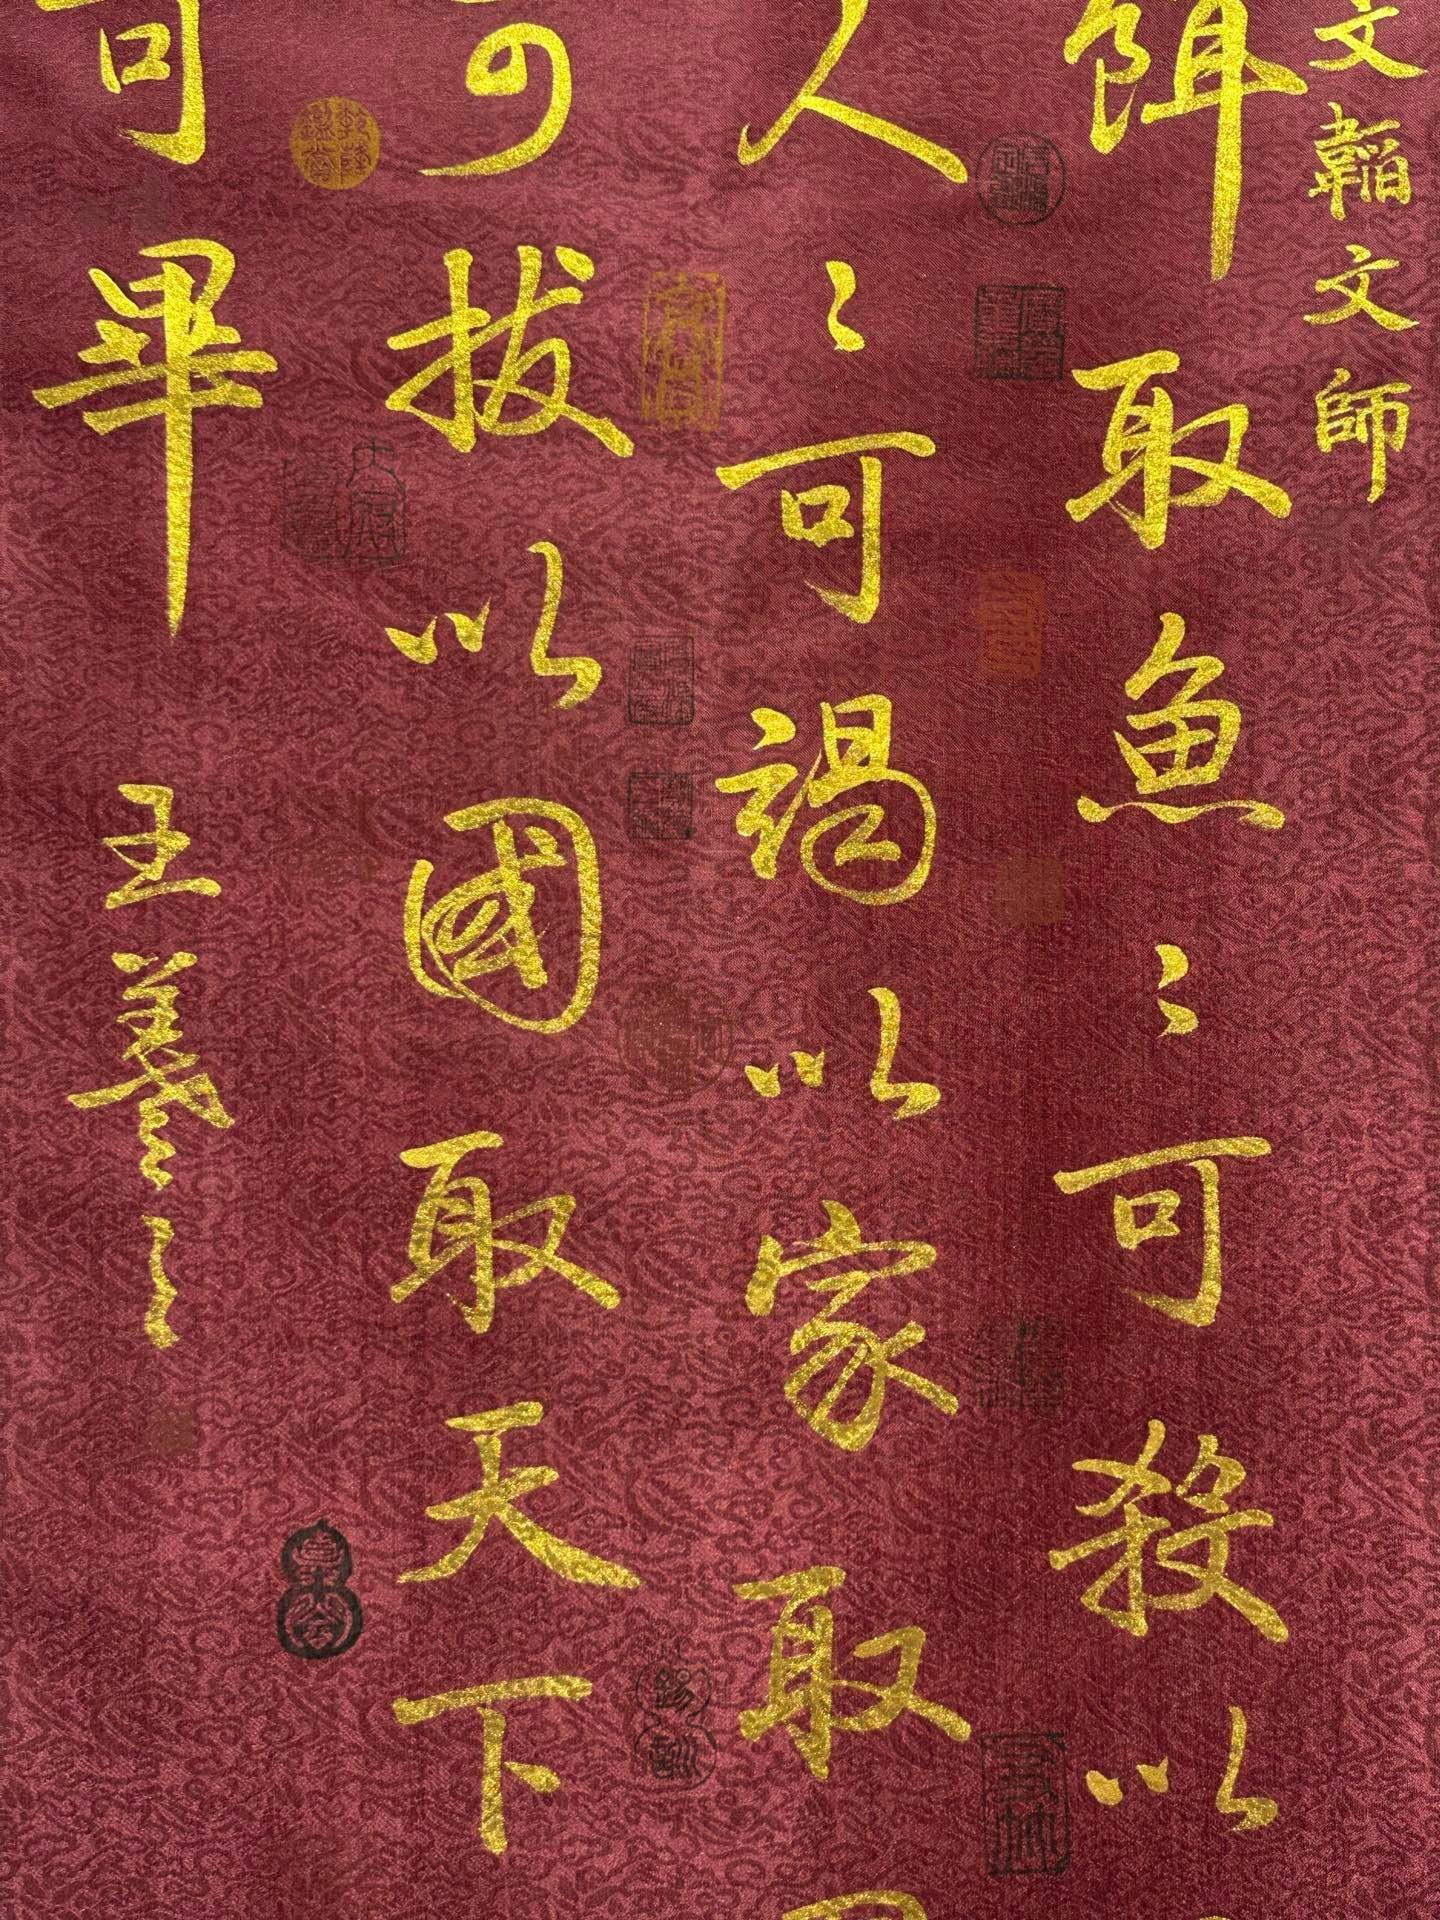 文韜文師
餌取魚〻可殺以
人〻可竭以家取
可拔以國取天下
可畢
王羲之